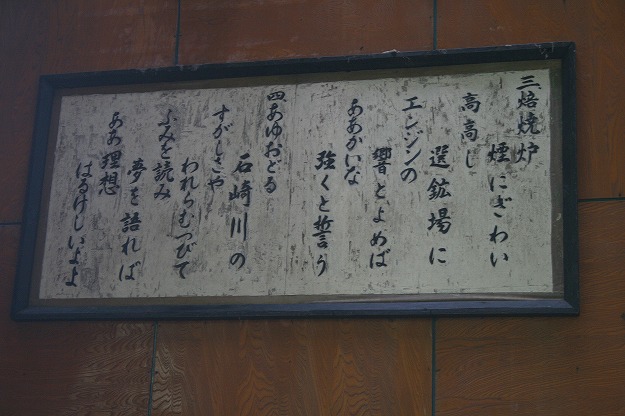 三、焙焼炉
煙にぎわい
高高し
選鉱場に
エンジンの
響とよめば
ああかいな
強くと誓う
四、あゆおどる
石崎川の
すがしさや
われらむつびて
ふみを読み
夢を語れば
ああ理想
はるけしいよよ